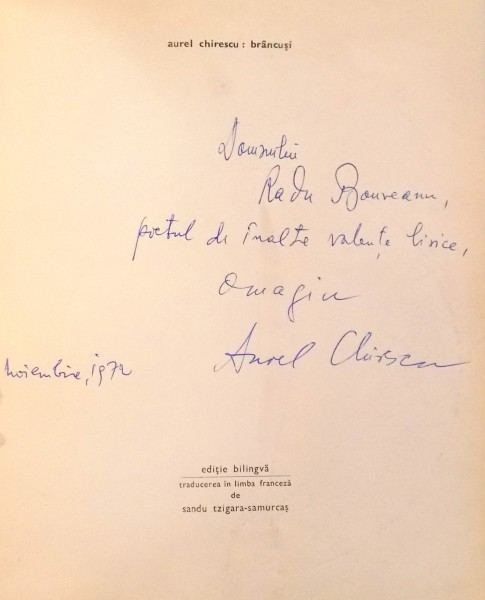 aurel chirescu : brâncuși
Domnului
Radu Boureanu,
poetul de înalte valențe lirice,
omagiu
Aurel Chirescu
noiembrie, 1972
ediție bilingvă
traducerea în limba franceză
de
sandu tzigara-samurcaș